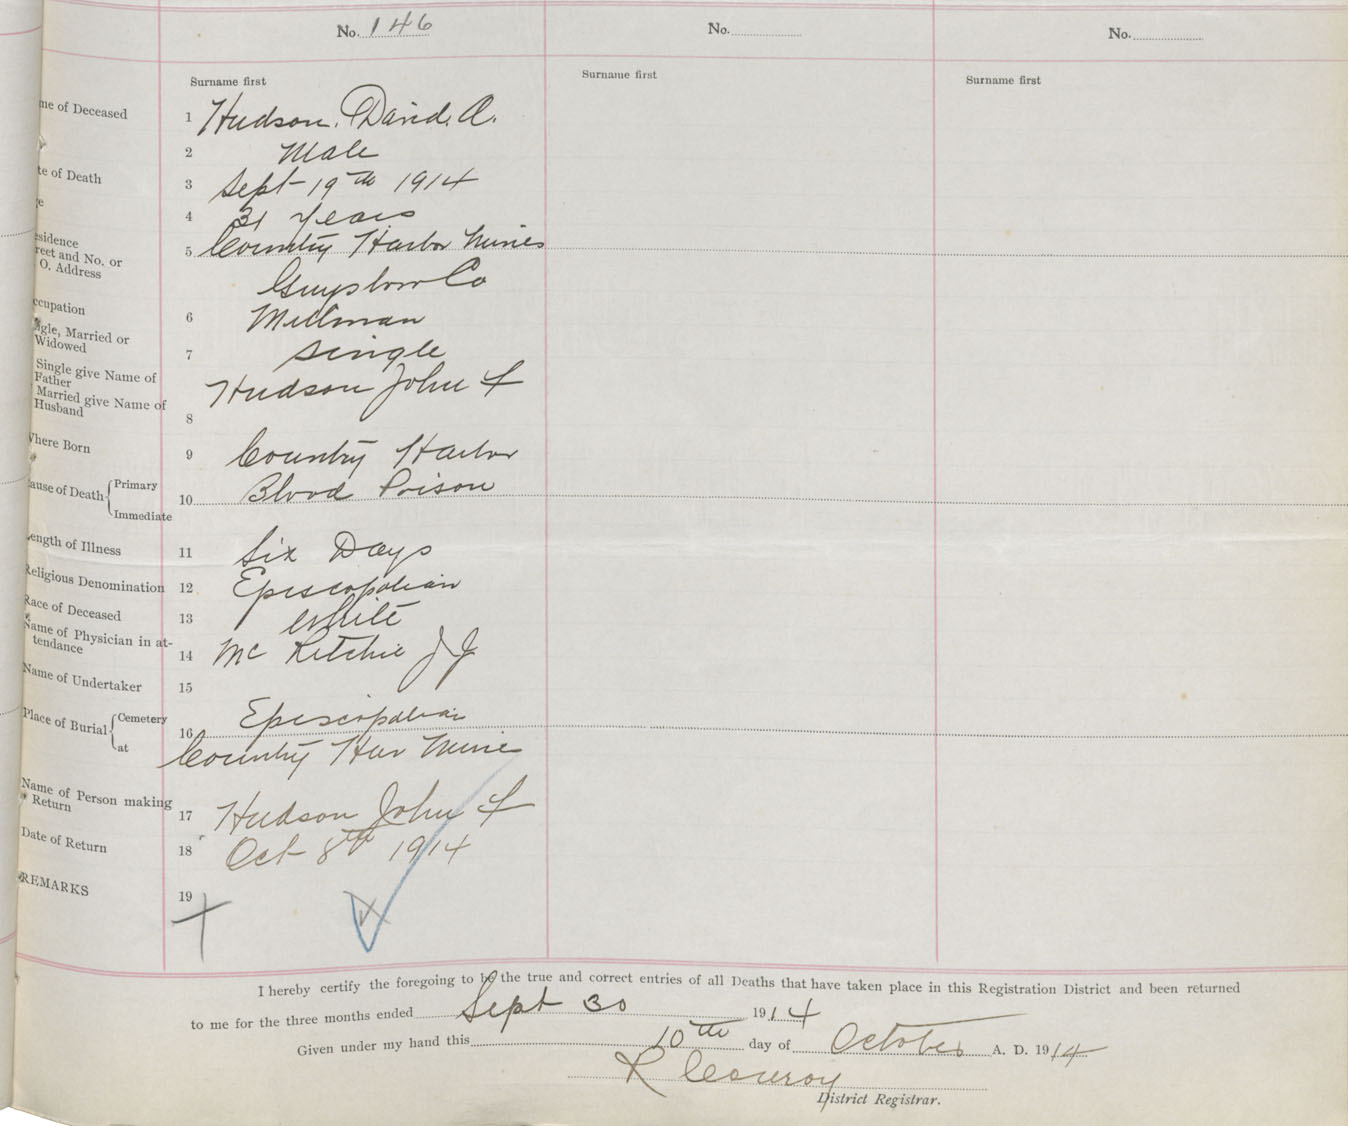 No. 146 No. No.
Surname first Surname first Surname first
me of Deceased 1 Hudson, David. A.
2 Male
te of Death 3 Sept 19th 1914
e 4 31 Years
esidence
reet and No. or 5 Country Harbor Mines
O. Address
Guysboro Co
ccupation 6 Millman
ngle, Married or
Widowed 7 Single
Single give Name of
Father Hudson John F
Married give Name of
Husband 8
Where Born 9 Country Harbor
ause of Death Primary 10 Blood Poison
Immediate
Length of Illness 11 Six Days
Religious Denomination 12 Episcopalian
Race of Deceased 13 White
Name of Physician in at-
tendance 14 Mc Ritchie J J
Name of Undertaker 15
Place of Burial Cemetery 16 Episcopalian
at Country Har Mine
Name of Person making
Return 17 Hudson John F
Date of Return 18 Oct 8th 1914
REMARKS 19
I hereby certify the foregoing to be the true and correct entries of all Deaths that have taken place in this Registration District and been returned
to me for the three months ended Sept 30 1914
Given under my hand this 10th day of October A. D. 1914
R Conroy
District Registrar.